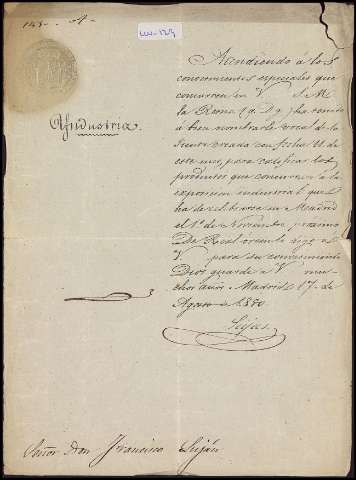 Industria.
Atendiendo á los
conocimientos especiales que
concurren en V. S. M.
la Reina (q. D. g.) ha tenido
á bien nombrarle vocal de la
Junta creada con fecha 11 de
este mes, para calificar los
productos que concurran á la
exposicion industrial que
ha de celebrarse en Madrid
el 1º de Noviembre próximo
De Real órden lo digo á
V. para su conocimiento
Dios guarde á V. mu-
chos años. Madrid 17 de
Agosto de 1850.
Seijas
Señor Don Francisco Luján